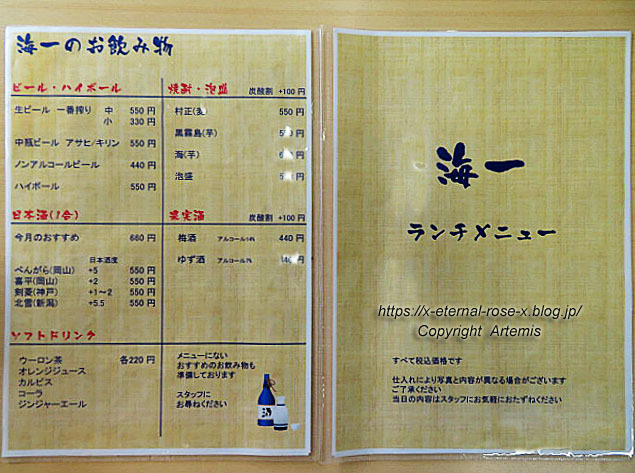 海一のお飲み物
ビール・ハイボール
生ビール 一番搾り 中 550 円
小 330 円
中瓶ビール アサヒ/キリン 550 円
ノンアルコールビール 440 円
ハイボール 550 円
日本酒(1合)
今月のおすすめ 660 円
日本酒度
べんがら(岡山) +5 550 円
喜平(岡山) +2 550 円
剣菱(神戸) +1〜2 550 円
北雪(新潟) +5.5 550 円
ソフトドリンク
ウーロン茶 各220 円
オレンジジュース
カルピス
コーラ
ジンジャーエール
焼酎・泡盛 炭酸割 +100 円
村正(麦) 550 円
黒霧島(芋) 円
海(芋) 円
泡盛 円
果実酒 炭酸割 +100 円
梅酒 アルコール14% 440 円
ゆず酒 アルコール7% 440 円
メニューにない
おすすめのお飲み物も
準備しております
スタッフに
お尋ねください
海一
ランチメニュー
https://x-eternal-rose-x.blog.jp/
Copyright Artemis
すべて税込価格です
仕入れにより写真と内容が異なる場合がございます
ご了承ください
当日の内容はスタッフにお気軽におたずねください